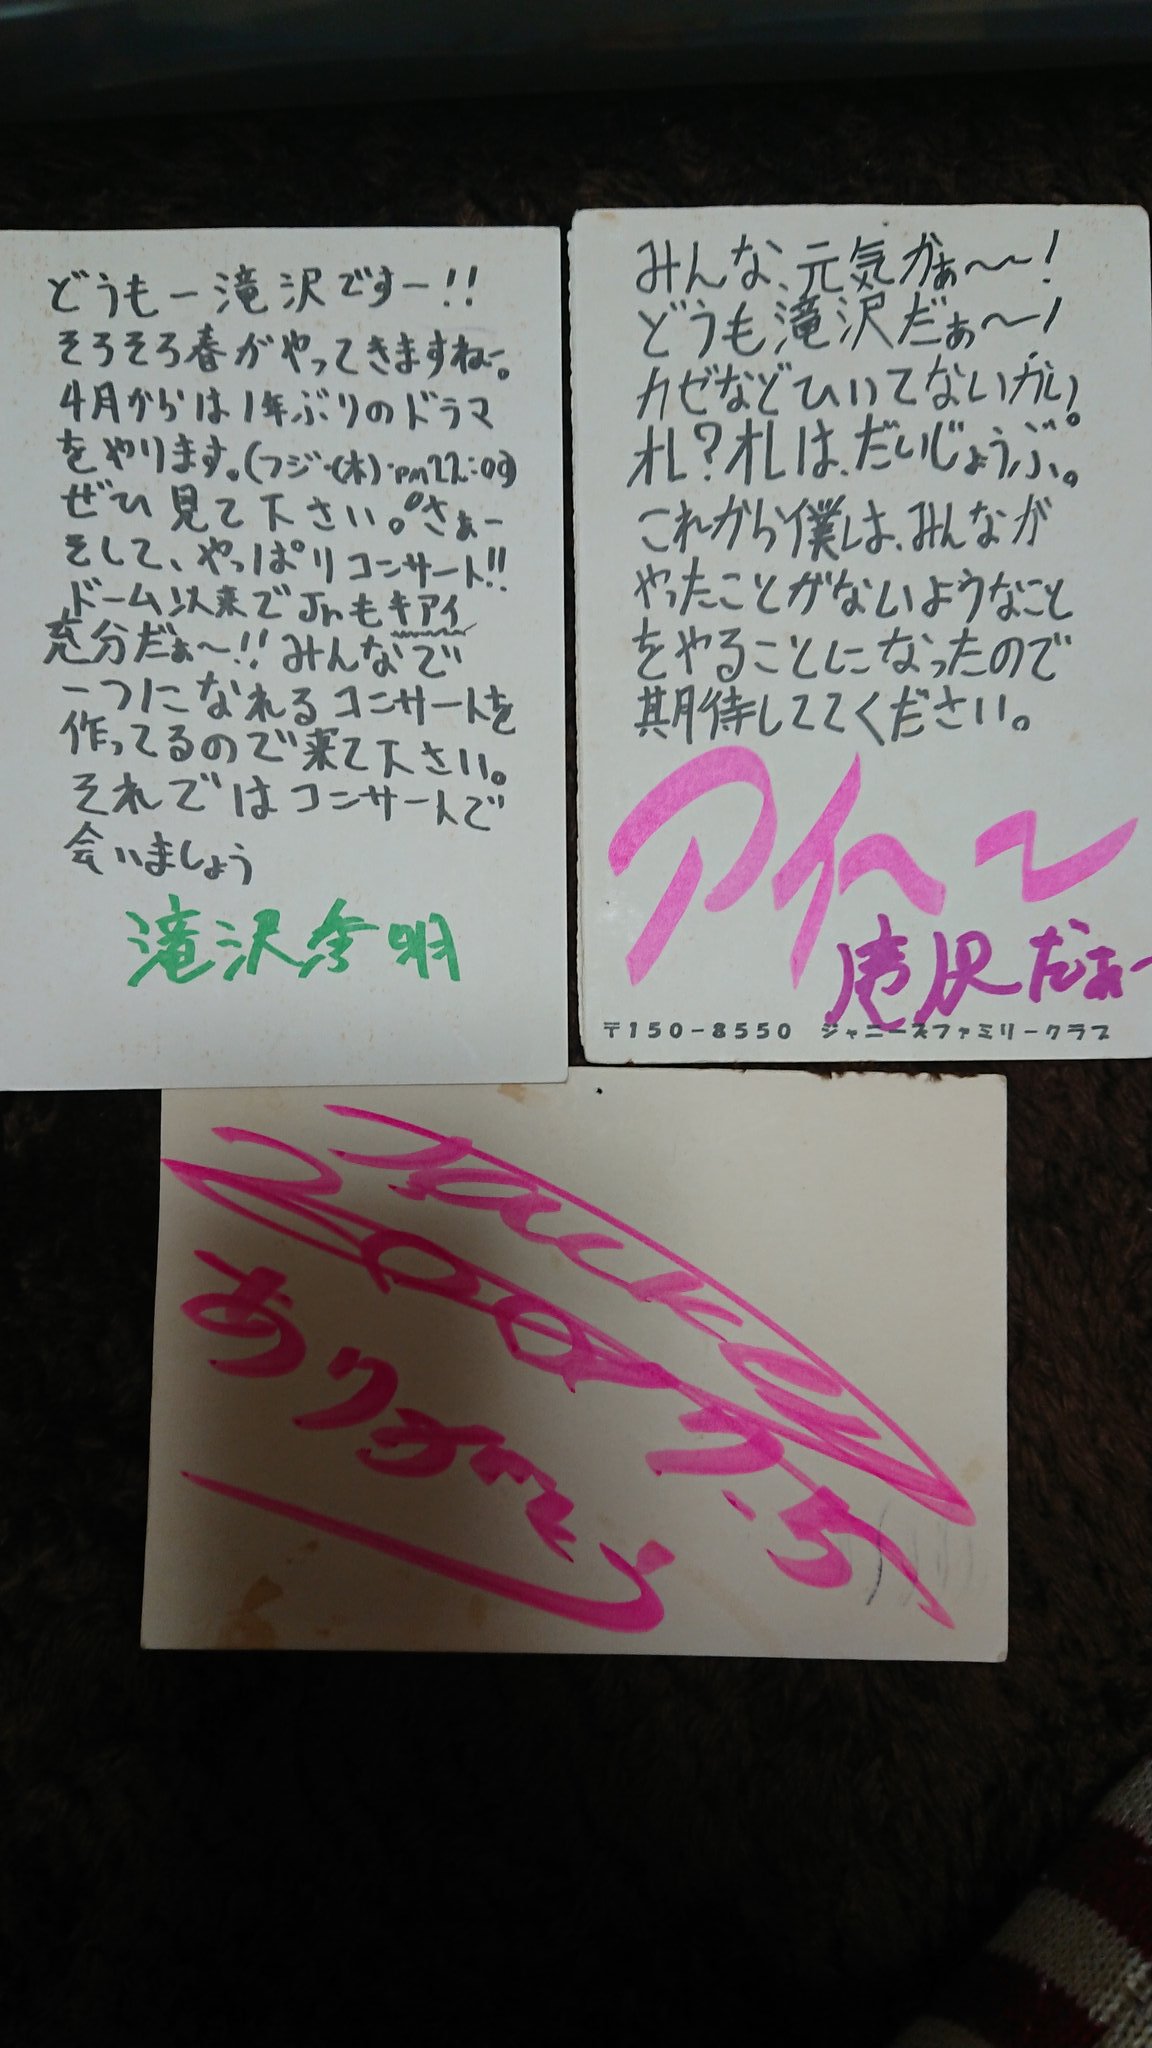 どうもー滝沢ですー!!
そろそろ春がやってきますねー。
4月からは1年ぶりのドラマ
をやります。(フジ・(木)・pm22:00)
ぜひ見て下さい。さぁー
そして、やっぱりコンサート!!
ドーム以来でJrもキアイ
充分だぁ〜!!みんなで
一つになれるコンサートを
作ってるので来て下さい。
それではコンサートで
会いましょう
滝沢秀明
みんな、元気かぁ〜〜!
どうも滝沢だぁ〜!
カゼなどひいてないかい。
オレ?オレは、だいじょうぶ。
これから僕は、みんなが
やったことがないようなこと
をやることになったので
期待しててください。
アイ〜〜
滝沢だぁー
〒150-8550 ジャニーズファミリークラブ
2001.1.5
ありがとう